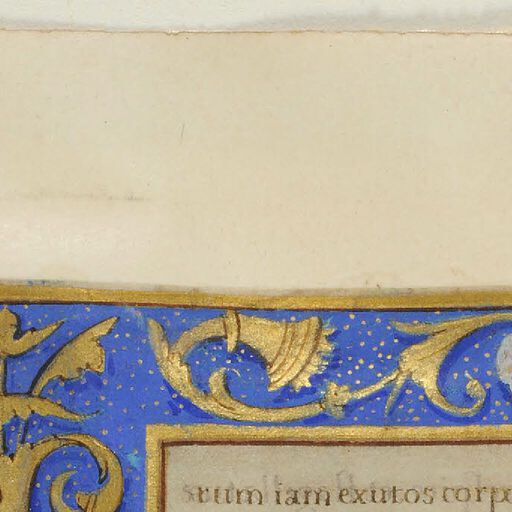 rum iam exutos corpo